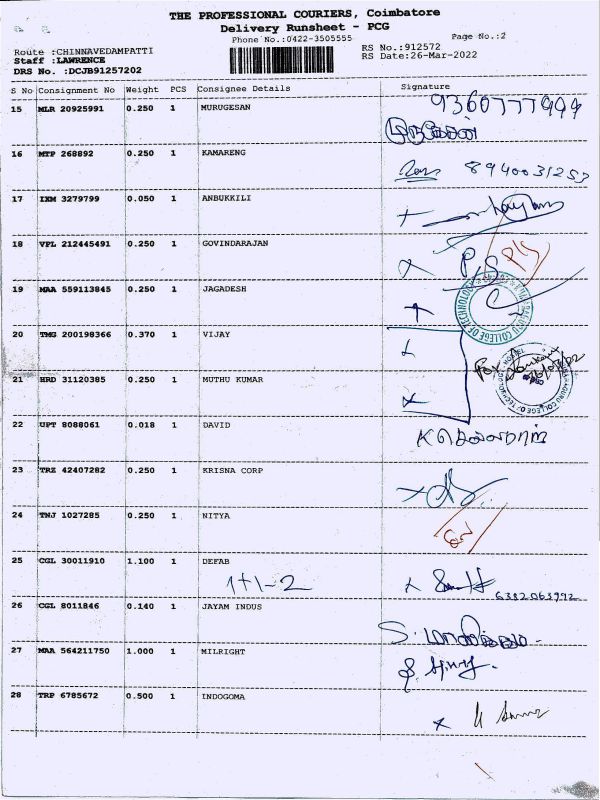 THE PROFESSIONAL COURIERS, Coimbatore
Delivery Runsheet - PCG
Phone No.:0422-3505555
Page No.:2
Route :CHINNAVEDAMPATTI
RS No.:912572
Staff :LAWRENCE
RS Date:26-Mar-2022
DRS No. :DCJB91257202
S No Consignment No Weight PCS Consignee Details Signature
15 MLR 20925991 0.250 1 MURUGESAN 9360777999
முருகேசன்
16 MTP 268892 0.250 1 KAMARENG 8940031253
17 IXM 3279799 0.050 1 ANBUKKILI
18 VPL 212445491 0.250 1 GOVINDARAJAN
19 MAA 559113845 0.250 1 JAGADESH
20 TMG 200198366 0.370 1 VIJAY
21 HRD 31120385 0.250 1 MUTHU KUMAR
22 UPT 8088061 0.018 1 DAVID
23 TRZ 42407282 0.250 1 KRISNA CORP
24 TNJ 1027285 0.250 1 NITYA
25 CGL 30011910 1.100 1 DEFAB
1+1-2
6382063992
26 CGL 8011846 0.140 1 JAYAM INDUS
27 MAA 564211750 1.000 1 MILRIGHT
28 TRP 6785672 0.500 1 INDOGOMA